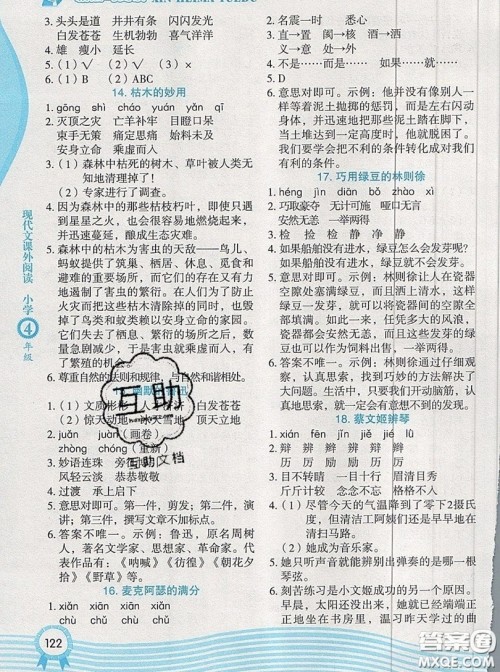 XIN HEIMA YUEDU
3. 头头是道 井井有条 闪闪发光
白发苍苍 生机勃勃 喜气洋洋
4. 雄 瘦小 干裂
5. (1)√ (2)√ (3)×
6. (1)√ (2)ABC
14. 枯木的妙用
1. gōng shì cháo yuán yǎn qī
2. 灭顶之灾 亡羊补牢 目瞪口呆
束手无策 痛定思痛 始料未及
安身立命 乘虚而人
3. (1)森林中枯死的树木、草叶被人类无
知地清理掉了!
(2)专家进行了调查。
4. 因为森林中的那些枯枝朽叶,即使只遇
到星星之火,也会很容易地燃烧起来,
并迅速蔓延,酿成生态灾难。
5. 森林中的枯木为害虫的天敌——鸟儿、
蚂蚁提供了筑巢、栖居、休息、觅食和
避难的重要场所,而它们的存在又有力
地遏制了害虫的繁衍。所以,人们在彻
底地把这些枯木清除掉的同时,也毁
掉了鸟类和蚁类赖以安身立命的家园。
它们失去了栖居、繁衍的场所后,数
量急剧减少,于是害虫就乘虚而人,有
了繁殖的机会。
6. 尊重自然的法则和规律,与自然和谐相处。
1. (1)文质彬彬 人才济济 白发苍苍
(2)惊天动地 冰天雪地 顶天立地
2. juǎn juàn(画卷)
zhòng chóng(重新)
3. 妙语连珠
风轻云淡 恭恭敬敬
4. 过渡 承上启下
5. 意思对即可。第一件,剪发;第二件,演
讲;第三件,撰写文章不加标点。
6. 答案不唯一。示例:鲁迅,原名周树
人,著名文学家、思想家、革命家。代表
作品有:《呐喊》《彷徨》《朝花夕
拾》《野草》等。
16. 麦克阿瑟的满分
1. xiǎn xiān
chù chǔ
2. 名震一时 (沉着)
3. 直→置 阂→核 酒→洒
震→振 至→致
4. 不是……而是…… 如果……就……
5. D
6. 意思对即可。示例:他并没有像别人一
样等着泥土抛掷的惩罚,而是左右闪动
身体,并迅速地把那些泥土踏在脚下,
当土堆达到一定高度时,他就脱离了困
境。我们要学会把不利的条件转化成对我们
有利的条件。
17. 巧用绿豆的林则徐
1. héng jìn dī bǎo zhào xì
2. 巧取豪夺 无计可施 哑口无言
安然无恙 一举两得
3. 检 捡 检 静 净 静
4. 如果船舶没有进水,绿豆怎么会发芽呢?
如果船舶没有进水,绿豆就不会发芽。
5. 意思对即可。示例:林则徐让人在瓷器
空隙塞满绿豆,当有水洒进去时,绿豆
发芽了,塞满了船舱的空间和瓷器的空
隙。如此一来,任凭遭受多大的风浪,
瓷器都会安然无恙,而且这些发芽的绿
豆也可以作为饲料出售,一举两得。
6. 答案不唯一。示例:林则徐经过仔细
观察,认真思考,找到了问题的关键所
在,然后利用巧妙的方法解决了问
题。生活中,我们也要勤于观察,善于
思考,在遇到困难时,才能想出解决的
方法。
18. 蔡文姬辨琴
1. xián fēn jī xī xiǎn
2. 辩 辨 辫 辨 辩
历 厉 励 厉 历
3. 一模一样 一目十行 眉清目秀
斤斤计较 念念不忘 息息相关
4. (1)尽管今天的气温降到了零下2摄氏
度,但清洁工阿姨们还是早早地在
清扫马路。
(2)她成为音乐家。
5. 她只听声音就能辨别出弹奏的是哪一根
琴弦。
6. 刻苦练习是小文姬成功的另一个原因。
早晨,太阳还没出来,她就悄悄来到
屋后的水塘边,温习昨天学过的曲
现代文课外阅读 小学4年级
互助
互助文档
122
答案圈
MXQE.COM